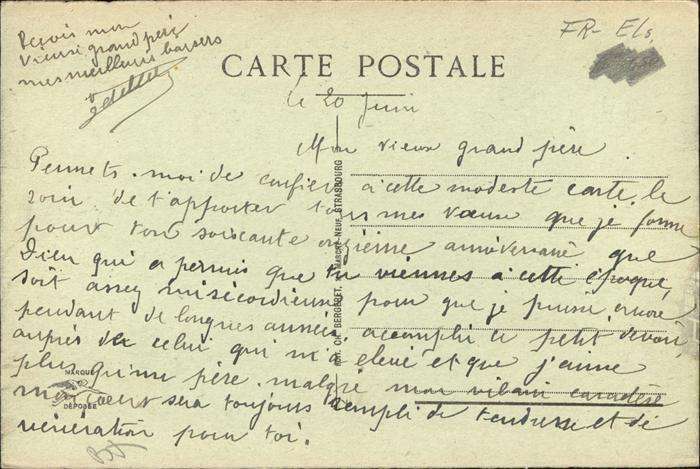 Reçois mon
vieux grand père
mes meilleurs baisers
FR- Els
CARTE POSTALE
le 20 Juin
Mon vieux grand père.
Permets-moi de confier à cette modeste carte, le
soin de t'apporter tous mes vœux que je forme
pour ton soixante onzième anniversaire, que
Dieu qui a permis que tu viennes à cette époque,
soit assez miséricordieuse pour que je puisse, encore
pendant de longues années, accomplir ce petit devoir,
auprès de celui qui m'a élevé et que j'aime
plus qu'un père. malgré mon vilain caractère
mon cœur sera toujours rempli de tendresse et de
vénération pour toi.
MARQUE
DÉPOSÉE
STRASBOURG